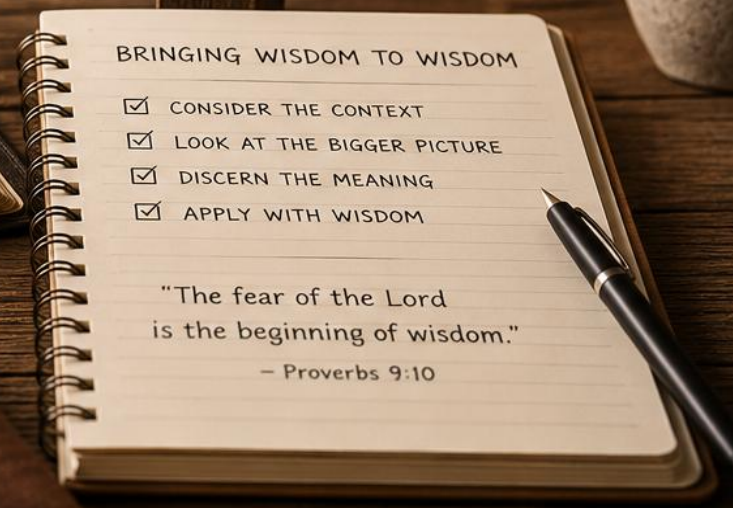 BRINGING WISDOM TO WISDOM
CONSIDER THE CONTEXT
LOOK AT THE BIGGER PICTURE
DISCERN THE MEANING
APPLY WITH WISDOM
"The fear of the Lord
is the beginning of wisdom."
– Proverbs 9:10